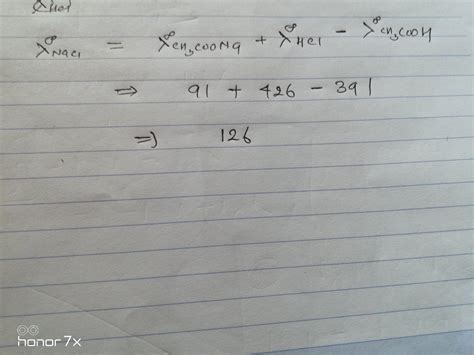 λ∞HCl
λ∞NaCl = λ∞CH3COONa + λ∞HCl - λ∞CH3COOH
⇒ 91 + 426 - 391
⇒ 126
honor 7x